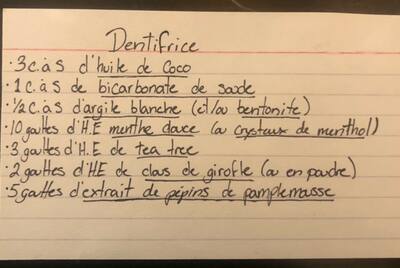 Dentifrice
· 3 c.à.s d'huile de coco
· 1 c.à.s de bicarbonate de soude
· ½ c.à.s d'argile blanche (et/ou bentonite)
· 10 gouttes d'H.E menthe douce (ou crystaux de menthol)
· 3 gouttes d'H.E de tea tree
· 2 gouttes d'HE de clous de girofle (ou en poudre)
· 5 gouttes d'extrait de pépins de pamplemousse